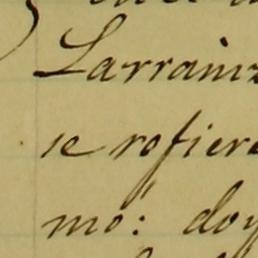 Larrainz
se rofiere
mo: doy